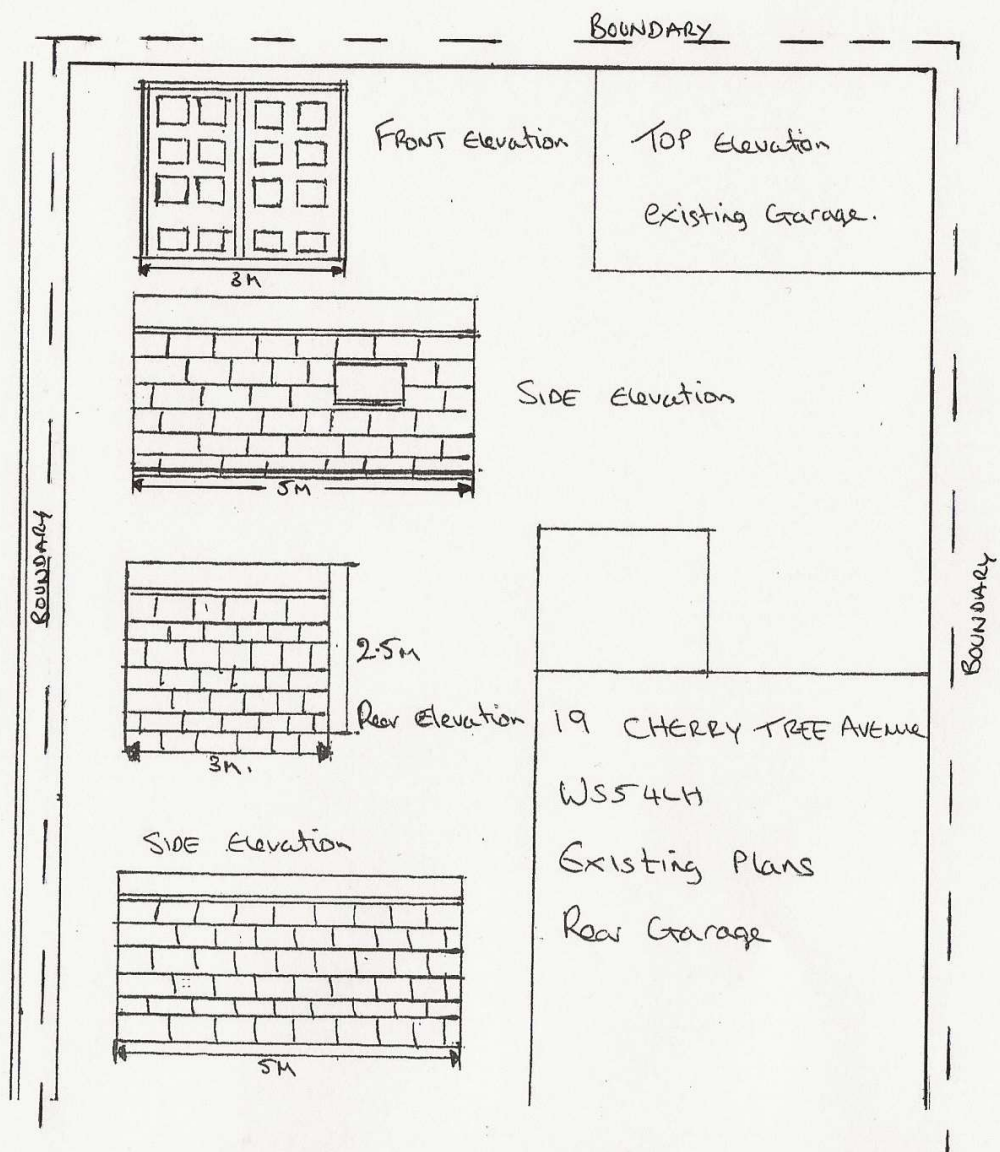 BOUNDARY
FRONT Elevation
TOP Elevation
existing Garage.
3M
SIDE Elevation
5M
BOUNDARY
BOUNDARY
2.5M
Rear Elevation
3M.
19 CHERRY TREE AVENUE
WS54LH
Existing Plans
Rear Garage
SIDE Elevation
5M